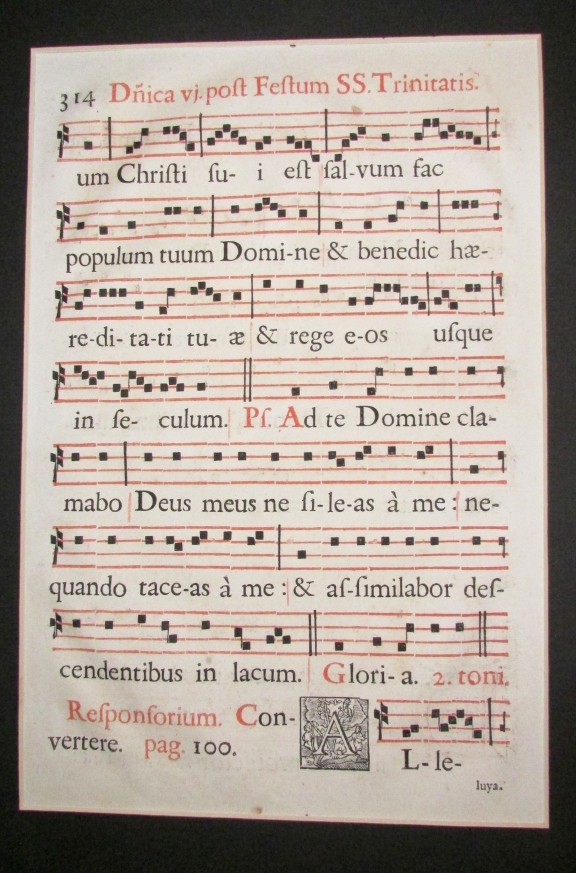 314 Dñica vj. poſt Feſtum SS. Trinitatis.
um Chriſti ſu- i eſt ſal-vum fac
populum tuum Domi-ne & benedic hæ-
re-di-ta-ti tu- æ & rege e-os uſque
in ſe- culum. Pſ. Ad te Domine cla-
mabo Deus meus ne ſi-le-as à me : ne-
quando tace-as à me : & aſ-ſimilabor deſ-
cendentibus in lacum. Glori-a. 2. toni.
Reſponſorium. Con-
vertere. pag. 100.
A L-le-
luya.